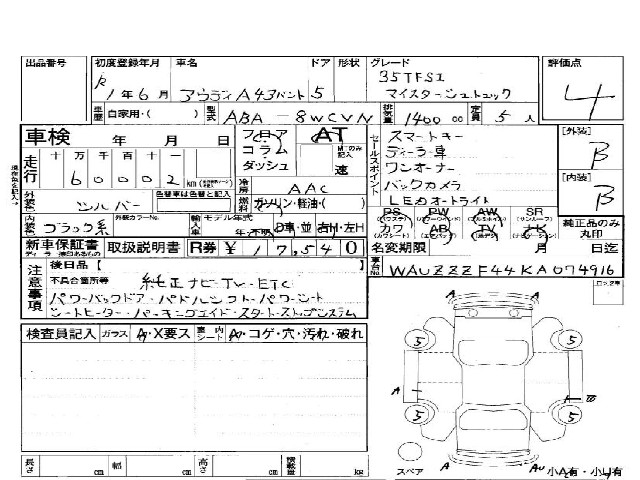 出品番号 初度登録年月 車名 ドア 形状 グレード 評価点
R 1年6月 アウディA43バント 5 35TFSI
マイスターシュトュック 4
車歴 自家用・( ) 型式 ABA-8WCVN 排気量 1400 cc 定員 5人
車検 年 月 日 フロア コラム ダッシュ AT 速 セールスポイント スマートキー [外装] B
走行 十万千百十一 60002 km ディーラー車
ワンオーナー
冷房 AAC バックカメラ [内装] B
外装色 シルバー 色替車は色替と記入 燃料 ガソリン・軽油・( ) LEDオートライト
PS PW AW SR
内装色 ブラック系 外装カラーNo. 輸入車 モデル年式 年・不明 D車・並 右H・左H カワ AB TV ナビ 純正品のみ丸印
新車保証書 取扱説明書 R券 ¥17,540 名変期限 月 日迄
注意事項 後日品[ ] 車台No. WAUZZZF44KA074916
不具合箇所等 純正ナビ・TV・ETC
パワーバックドア・パドルシフト・パワーシート
シートヒーター・パーキングエイド・スタートストップシステム
検査員記入 ガラス A・X要ス 室内シート A・コゲ・穴・汚れ・破れ
A A
5 5
A
5 5
スペア A 小A有・小U有
長さ cm 幅 cm 高さ cm 積載量 kg